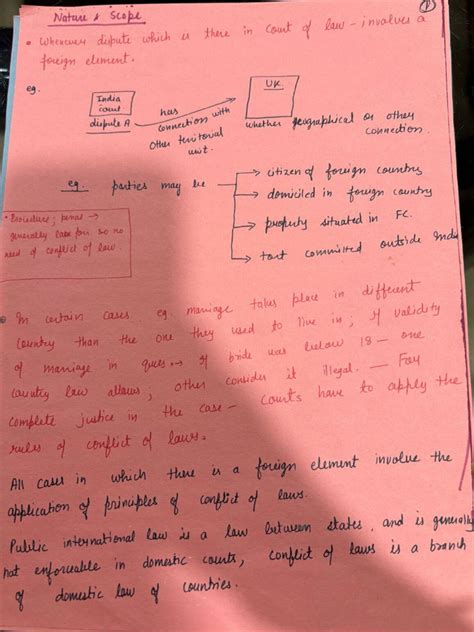 Nature & Scope
①
• Whenever dispute which is there in court of law - involves a
foreign element.
eg.
India
court
dispute A
has
connection with
other territorial
unit.
UK
whether geographical or other
connection.
eg. parties may be
→ citizen of foreign country
→ domiciled in foreign country
→ property situated in FC.
→ tort committed outside India
• Procedure; penal →
generally so no
need of conflict of law
• In certain cases eg marriage takes place in different
country than the one they used to live in; if validity
of marriage in ques → if bride was below 18 - one
country law allows, other consider it illegal. - For
complete justice in the case - courts have to apply the
rules of conflict of laws.
All cases in which there is a foreign element involve the
application of principles of conflict of laws.
Public international law is a law between states, and is generally
not enforceable in domestic courts, conflict of laws is a branch
of domestic law of countries.